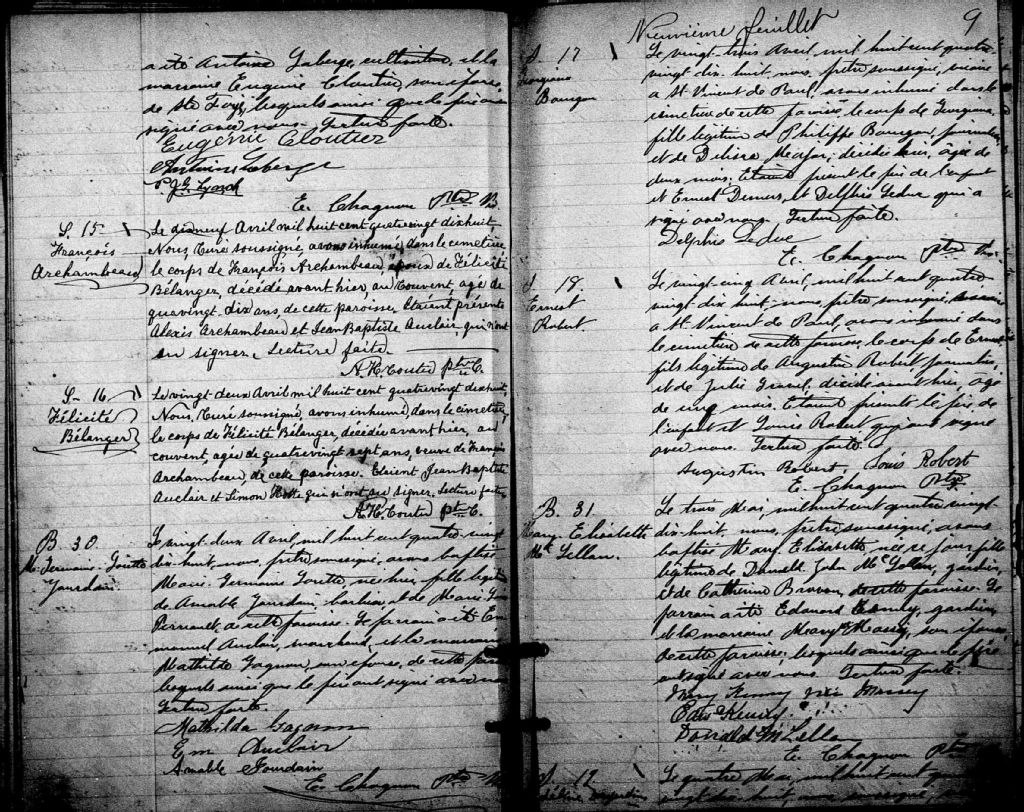 a été Antoine Laberge, cultivateur, et la
marraine Eugénie Cloutier, son épouse,
de Ste Foye, lesquels ainsi que le père ont
signé avec nous. Lecture faite.
Eugénie Cloutier
Antoine Laberge
E. Chagnon Ptre V.
S. 15
François
Archambeau
Le dixneuf Avril mil huit cent quatrevingt dixhuit,
Nous, Curé soussigné, avons inhumé, dans le cimetière
le corps de François Archambeau, époux de Félicité
Bélanger, décédé avant hier, au Couvent, agé de
quavingt dix ans, de cette paroisse. Etaient présents
Alexis Archambeau et Jean Baptiste Auclair qui n'ont
su signer. Lecture faite.
Ptre C.
S. 16
Félicité
Bélanger
Le vingt deux Avril mil huit cent quatrevingt dixhuit,
Nous, Curé soussigné, avons inhumé, dans le cimetière,
le corps de Félicité Bélanger, décédée avant hier, au
couvent, agée de quatrevingt sept ans, veuve de François
Archambeau, de cette paroisse. Etaient Jean Baptiste
Auclair et Simon qui n'ont su signer. Lecture faite.
Ptre C.
B. 30
M. Germaine Ginette
Jourdain
Le vingt-deux Avril, mil huit cent quatre-vingt
dix-huit, nous, prêtre soussigné, avons baptisé
Marie Germaine Ginette, née hier, fille légitime
de Amable Jourdain, barbier, et de Marie
de cette paroisse. Le parrain a été Em-
manuel Auclair, marchand, et la marraine
Mathilda Gagnon, son épouse, de cette paroisse
lesquels ainsi que le père ont signé avec nous
Lecture faite.
Mathilda Gagnon
Em Auclair
Amable Jourdain
E. Chagnon Ptre V.
Neuvième feuillet 9
S. 17
Georgiana
Bourgon
Le vingt-trois Avril, mil huit cent quatre-
vingt dix-huit, nous, prêtre soussigné, vicaire
à St Vincent de Paul, avons inhumé dans le
cimetière de cette paroisse, le corps de Georgiana
fille légitime de Philippe Bourgon, journalier,
et de Delisca décédée hier, âgée de
deux mois. Etaient présent le père de l'enfant
et Ernest Demers, et Delphis Leduc qui a
signé avec nous. Lecture faite.
Delphis Leduc
E. Chagnon Ptre Vic.
S. 18.
Ernest
Robert
Le vingt-cinq Avril, mil huit cent quatre
vingt dix huit, nous, prêtre soussigné, vicaire
à St Vincent de Paul, avons inhumé dans
le cimetière de cette paroisse, le corps de Ernest
fils légitime de Augustin Robert, journalier,
et de Julie décédé avant hier, âgé
de cinq mois. Etaient présents le père de
l'enfant et Louis Robert qui ont signé
avec nous. Lecture faite.
Augustin Robert. Louis Robert
E. Chagnon Ptre.
B. 31
Mary Elisabeth
Mc Lellan.
Le trois Mai, mil huit cent quatre-vingt-
dix-huit, nous, prêtre soussigné, avons
baptisé Mary Elisabeth, née ce jour, fille
légitime de Donald John McLellan, gardien,
et de Catherine de cette paroisse. Le
parrain a été Edouard Kenny, gardien,
et la marraine Mary Massey, son épouse,
de cette paroisse, lesquels ainsi que le père
ont signé avec nous. Lecture faite.
Mary Kenny née Massey
Edw Kenny.
Donald McLellan
E. Chagnon Ptre
S. 19
Le quatre Mai, mil huit cent quatre
vingt dix huit, nous, prêtre soussigné